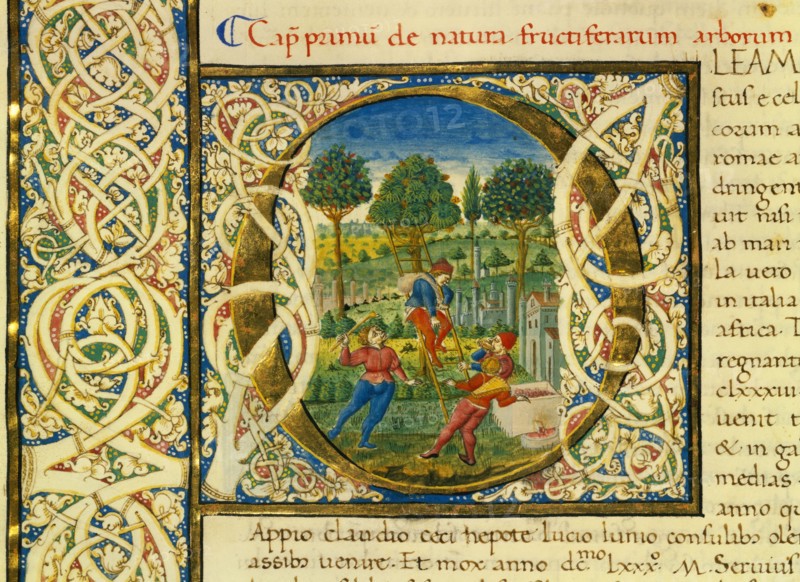 Cap̄ primū de natura fructiferarum arborum
OLEAM
stus e cel
corum a
romae a
dringent
uit nasi
ab mari
La uero
in italia
africa. T
regnanti
clxxxiii
uenit t
& in ga
medias
anno qu
Appio claudio ceci nepote lucio iunio consulibꝫ olei
assibꝫ uenire. Et mox anno dcᵐᵒ lxxxᵒ. M. Seruius